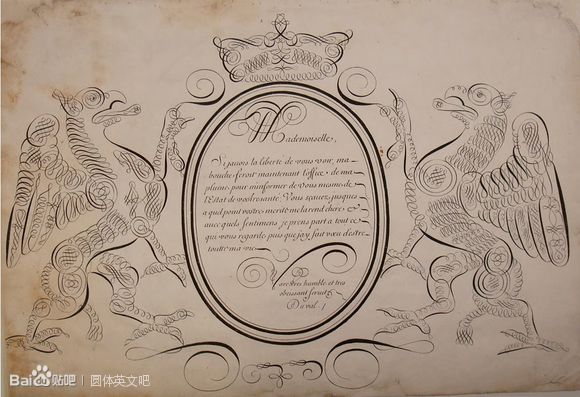 Mademoiselle,
Si javois la liberté de vous voir, ma-
bouche feroit maintenant l'office, de ma
plume, pour m'informer de vous mesme de
l'Estat de vostre santé. Vous sçavez, jusques
a quel point vostre merité me la rend chere &
avec quels sentimens je prens part a tout ce
qui vous regarde, puis que j'ay fait voeu d'estre
toutte ma vie
Vostre tres humble et tres
obeissant servit.
Du val.
Bai贴吧 | 圆体英文吧